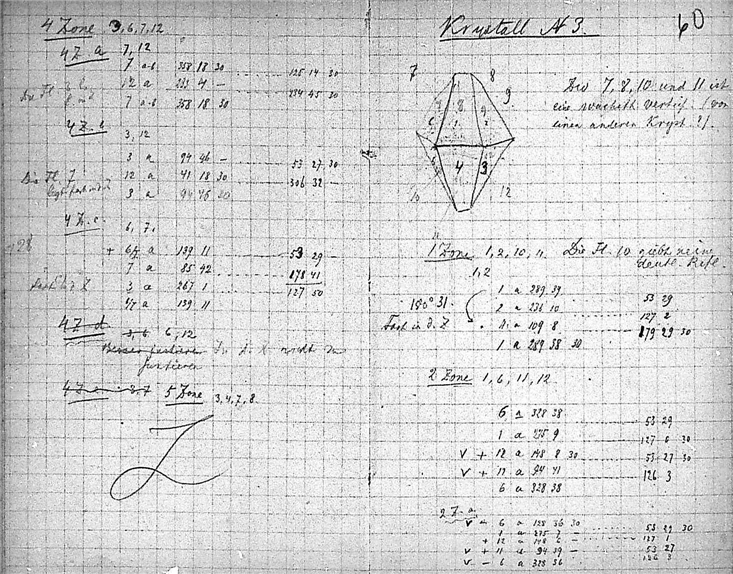 4 Zone 3, 6, 7, 12
4 Z. a 7, 12
7 a-b 358 18 30 125 14 30
12 a 233 4 – 234 45 30
7 a-b 358 18 30
3, 12
3 a 94 46 – 53 27 30
Die Fl. 7 12 a 41 18 30 306 32 –
3 a 94 46 20
4 Z. c. 6, 7.
a 139 11 53 29
7 a 85 42 178 41
3 a 267 1 127 50
a 139 11
4 Z d 3, 6 6, 12
justieren
5 Zone 3, 4, 7, 8.
60
Krystall N 3.
7 8 9
8 9
4 3
12
Die 7, 8, 10 und 11 ist
eine vertief. (von
einem anderen Kryst. ?).
1 Zone 1, 2, 10, 11. Die Fl. 10 giebt keine
deutl. Refl.
1, 2
1 a 289 39 53 29
2 a 236 10 127 2
Fast in d. Z a 109 8 179 29 30
1 a 289 38 30
2 Zone 1, 6, 11, 12.
6 a 328 38 53 29
1 a 275 9 127 0 30
v + 12 a 148 8 30 53 27 30
v + 11 a 94 41 126 3
6 a 328 38
2 Z. a.
6 a 128 36 30 53 29 30
1 a 275 7 – 127 1
+ 12 a 148 6 – 53 27
v + 11 a 94 39 – 126 3
v – 6 a 328 36